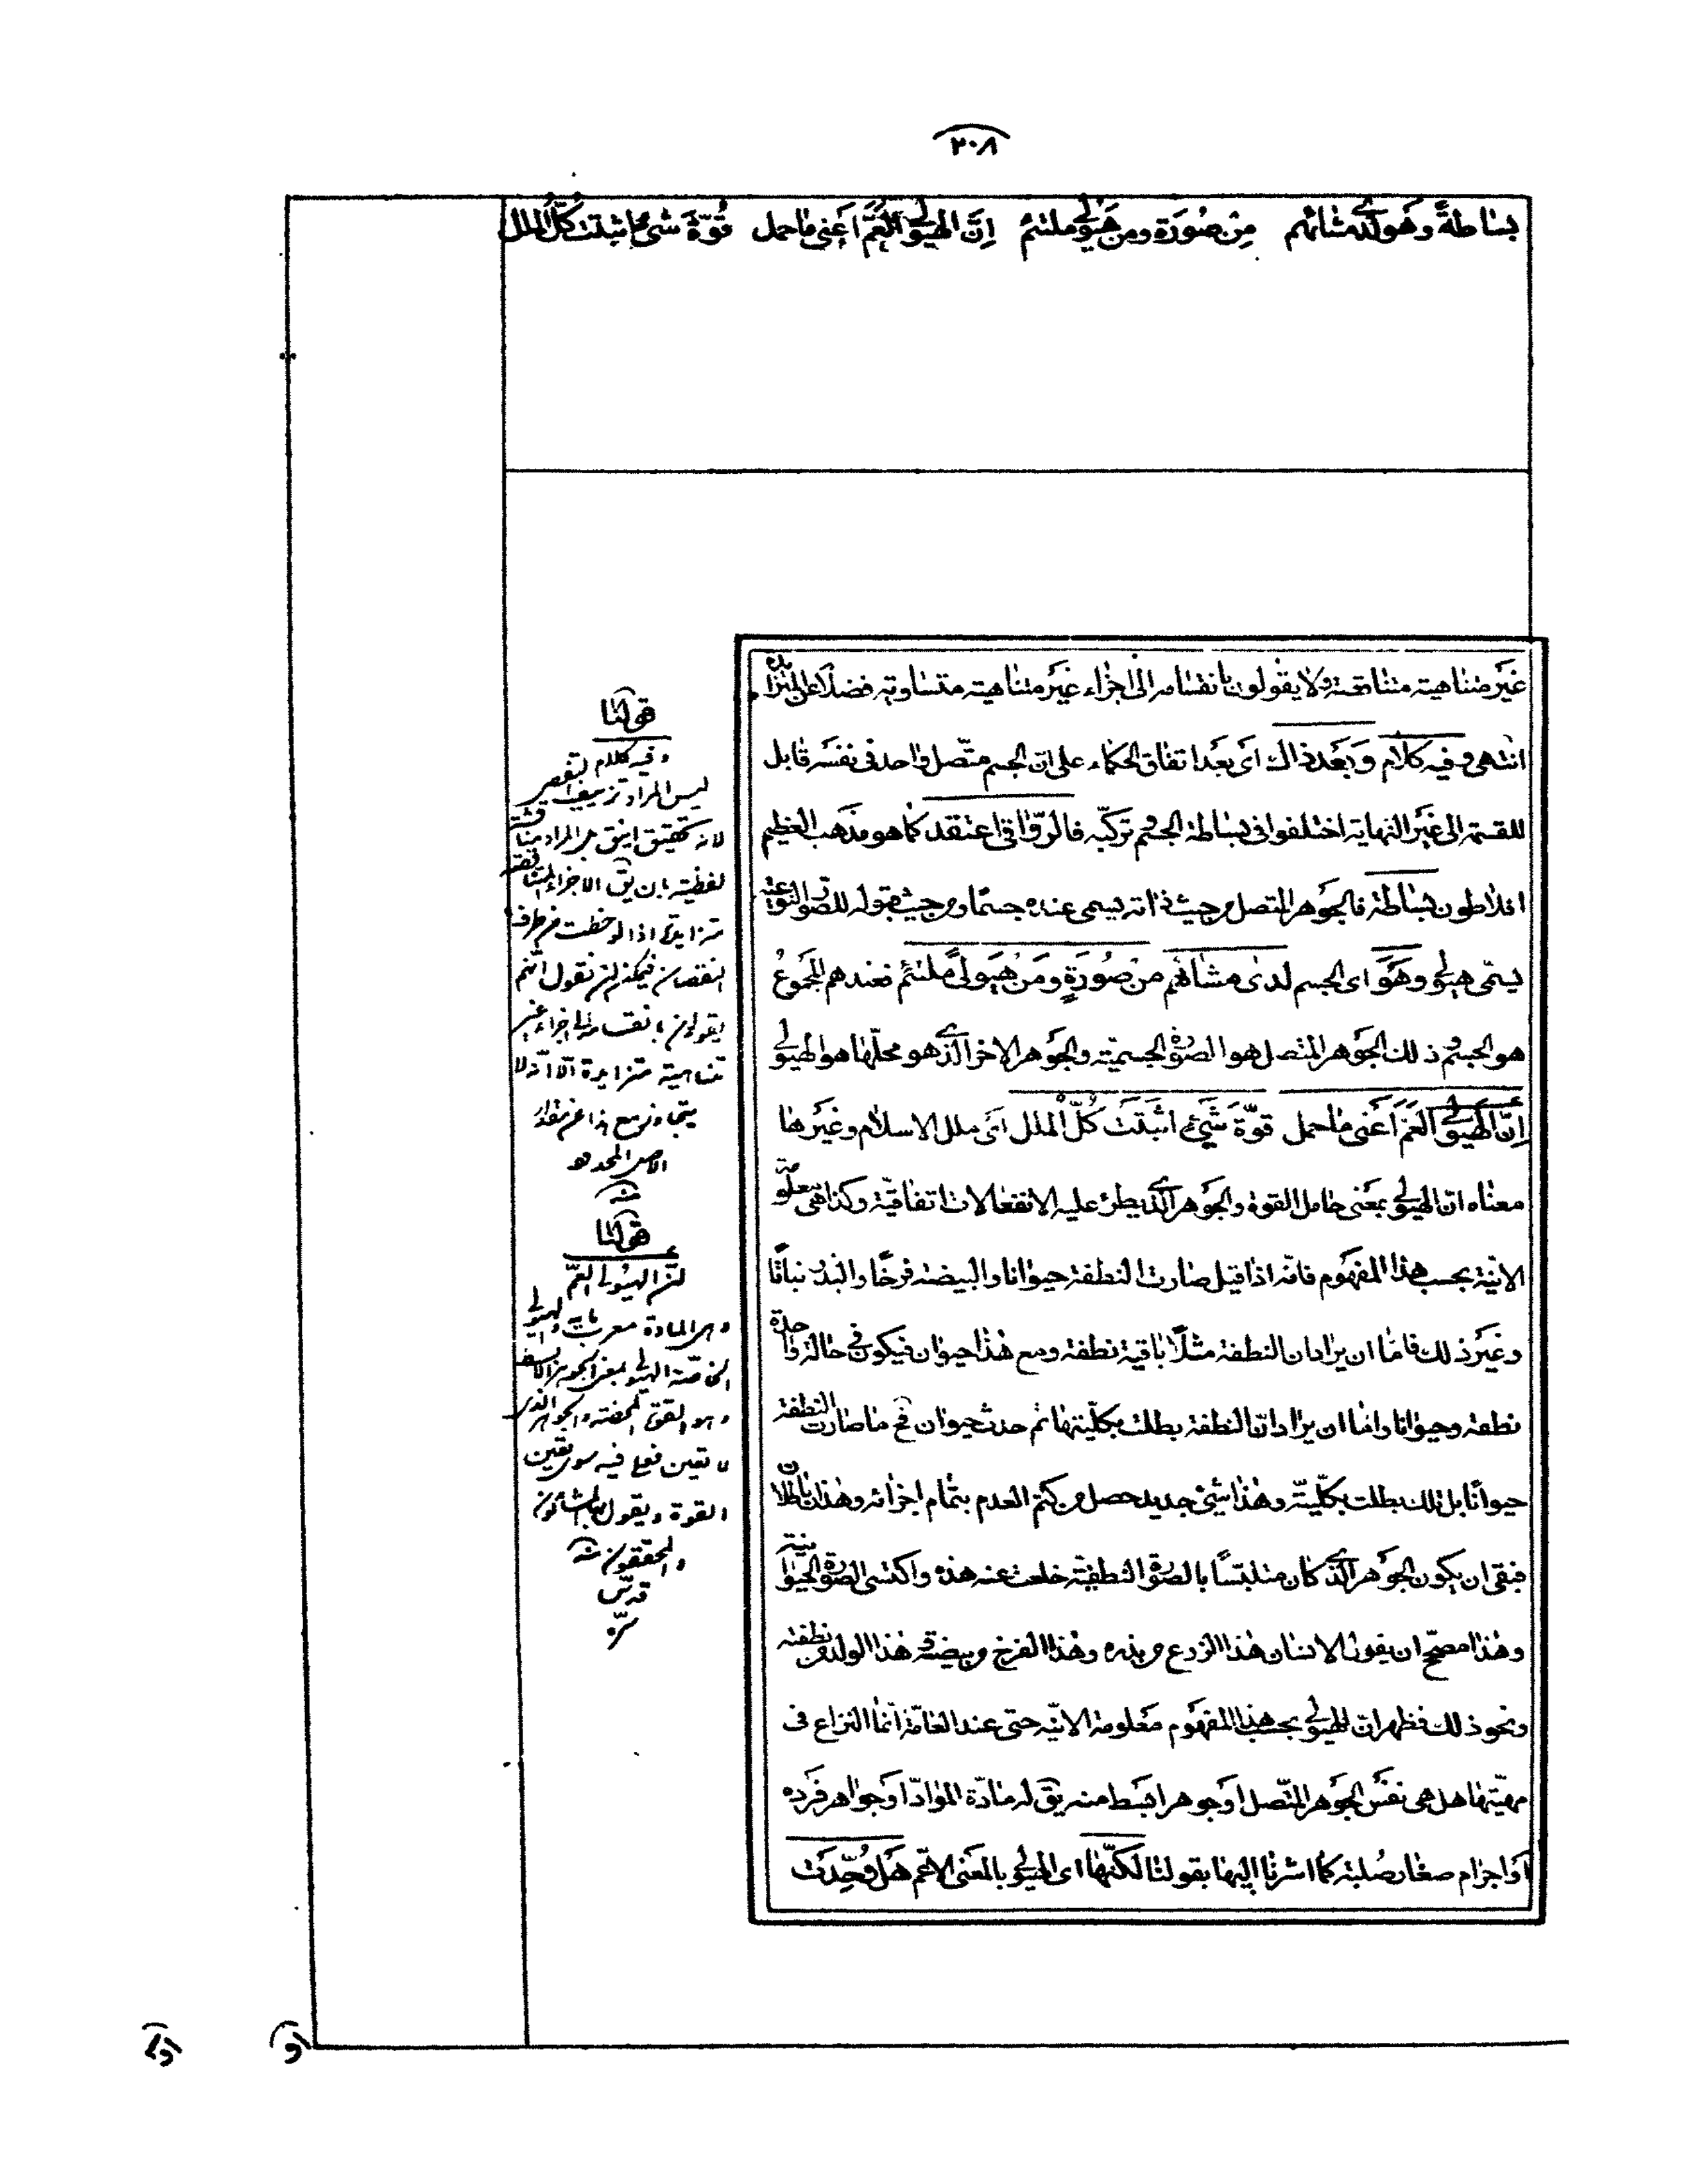 ٢٠٨
بساطة وهو لدى مشائهم من صورة ومن هيولى ملتئم إنّ الهيولى العمّ أعنى ما حمل قوّة شىء أثبتت كلّ الملل
غير متناهية متناقصة ولا يقولون بانقسامه الى اجزاء غير متناهية متساوية فضلا عن المتزايدة
انتهى وفيه كلام وبعد ذاك اى بعد اتفاق الحكماء على ان الجسم متّصل واحد فى نفسه قابل
للقسمة الى غير النهاية اختلفوا فى بساطة الجسم وتركّبه فالرّواقى اعتقد كما هو مذهب العظيم
افلاطون بساطة فالجوهر المتصل من حيث ذاته يسمى عنده جسمًا ومن حيث قبوله للصّور النّوعيّة
يسمّى هيولى وهو اى الجسم لدى مشائهم من صورة ومن هيولىً ملتئم فعندهم المجموع
هو الجسم وذلك الجوهر المتصل هو الصّورة الجسميّة والجوهر الاخر الّذى هو محلّها هو الهيولى
إنّ الهيولى العمّ أعنى ما حمل قوّة شىء اثبتت كلّ الملل اى ملل الاسلام وغيرها
معناه ان الهيولى بمعنى حامل القوة والجوهر الّذى يطرء عليه الانفعالات اتفاقيّة وكذا هى معلومة
الانيّة بحسب هذا المفهوم فانّه اذا قيل صارت النطفة حيوانا والبيضة فرخًا والبذر نباتًا
وغير ذلك فامّا ان يراد ان النطفة مثلًا باقية نطفة ومع هذا حيوان فيكون فى حالة واحدة
نطفة وحيوانا وامّا ان يراد انّ النطفة بطلت بكلّيتها ثم حدث حيوان فح ما صارت النطفة
حيوانًا بل ذلك بطلت بكلّيته وهذا شىء جديد حصل من كتم العدم بتمام اجزائه وهذان باطلان
فبقى ان يكون الجوهر الّذى كان متلبّسًا بالصّورة النطفيّة خلعت عنه هذه واكتسى الصّورة الحيوانيّة
وهذا مصحّح ان يقول الانسان هذا الزرع من بذره وهذا الفرخ من بيضته وهذا الولد من نطفته
ونحو ذلك فظهر ان للهيولى بحسب هذا المفهوم معلومة الانيّة حتى عند العامّة انّما النزاع فى
مهيّتها هل هى نفس الجوهر المتّصل او جوهر ابسط منه يق له مادّة الموادّ او جواهر فردة
او اجرام صغار صلبة كما اشرنا اليها بقولنا لكنّها اى الهيولى بالمعنى الاعم هل وحّدت
قولنا
وفيه كلام
ليس المراد تزييف
لانه تحقيق انيق بل المراد مناقشة
لفظية بان يق الاجزاء المتناقصة
متزايدة اذا لوحظت من طرف
النقصان فيمكن ان نقول انّهم
يقولون بانقسامه الى اجزاء غير
متناهية متزايدة الّا انّه لا
يتجاوز مع هذا عن مقدار
الاصل المحدود
منه
قولنا
انّ الهيولى العمّ
وهى المادة
الخاصّة الهيولى بمعنى الجوهر الابسط
وهو القوة المحضة والجوهر الذى
لا تعين فعلى فيه سوى تعين
القوة ويقول بها المشاؤون
والمحققون منه
قدّس
سرّه